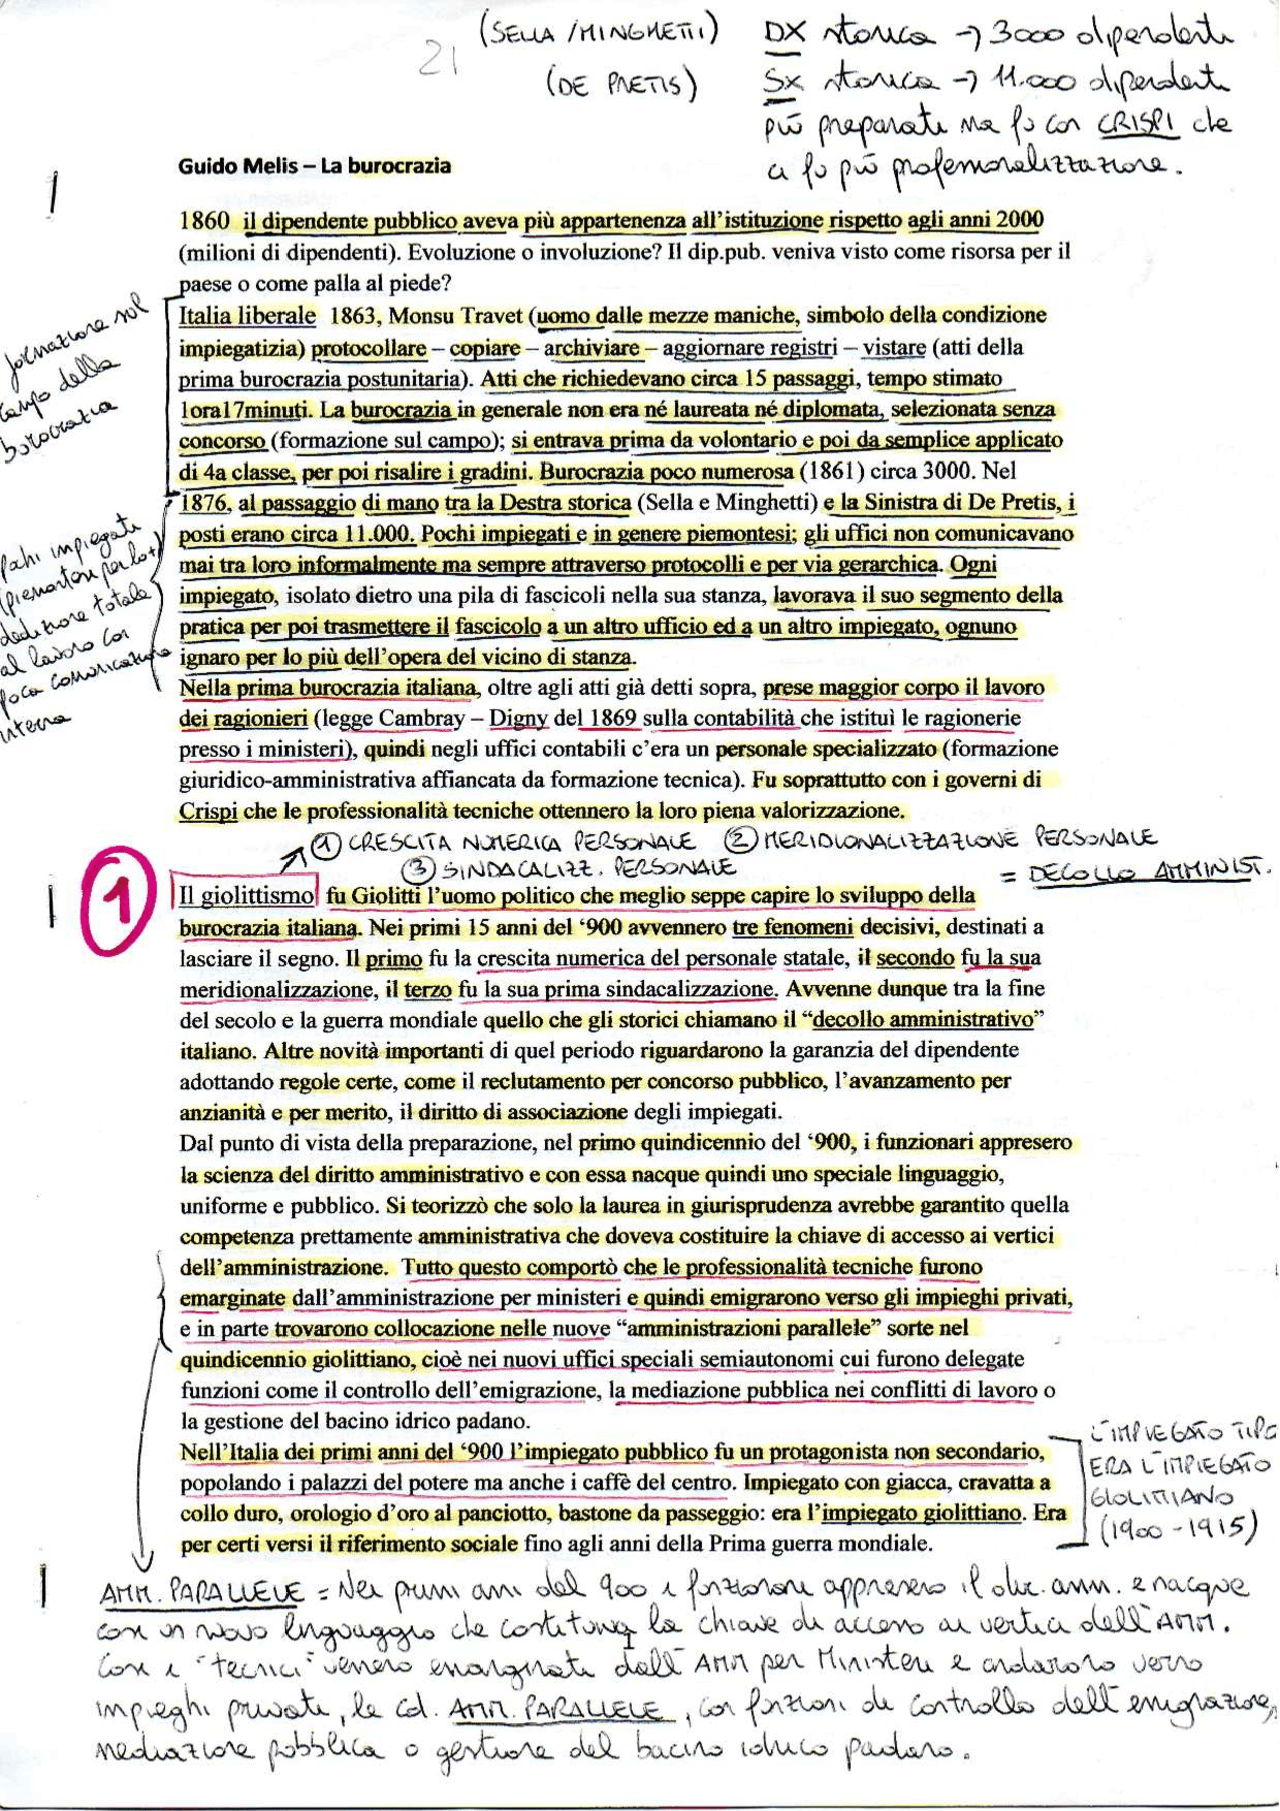 21
(SELLA/MINGHETTI)
(DE PRETIS)
DX storica → 3000 dipendenti
SX storica → 11.000 dipendenti
più preparati ma fu con CRISPI che
ci fu più professionalizzazione.
Guido Melis – La burocrazia
1860 il dipendente pubblico aveva più appartenenza all'istituzione rispetto agli anni 2000
(milioni di dipendenti). Evoluzione o involuzione? Il dip.pub. veniva visto come risorsa per il
paese o come palla al piede?
formazione sul
campo della
burocrazia
Italia liberale 1863, Monsu Travet (uomo dalle mezze maniche, simbolo della condizione
impiegatizia) protocollare – copiare – archiviare – aggiornare registri – vistare (atti della
prima burocrazia postunitaria). Atti che richiedevano circa 15 passaggi, tempo stimato
1ora17minuti. La burocrazia in generale non era né laureata né diplomata, selezionata senza
concorso (formazione sul campo); si entrava prima da volontario e poi da semplice applicato
di 4a classe, per poi risalire i gradini. Burocrazia poco numerosa (1861) circa 3000. Nel
1876, al passaggio di mano tra la Destra storica (Sella e Minghetti) e la Sinistra di De Pretis, i
posti erano circa 11.000. Pochi impiegati e in genere piemontesi; gli uffici non comunicavano
mai tra loro informalmente ma sempre attraverso protocolli e per via gerarchica. Ogni
impiegato, isolato dietro una pila di fascicoli nella sua stanza, lavorava il suo segmento della
pratica per poi trasmettere il fascicolo a un altro ufficio ed a un altro impiegato, ognuno
ignaro per lo più dell'opera del vicino di stanza.
Pochi impiegati
(piemontesi per lo +)
dedizione totale
al lavoro con
poca comunicazione
interna
Nella prima burocrazia italiana, oltre agli atti già detti sopra, prese maggior corpo il lavoro
dei ragionieri (legge Cambray – Digny del 1869 sulla contabilità che istituì le ragionerie
presso i ministeri), quindi negli uffici contabili c'era un personale specializzato (formazione
giuridico-amministrativa affiancata da formazione tecnica). Fu soprattutto con i governi di
Crispi che le professionalità tecniche ottennero la loro piena valorizzazione.
① CRESCITA NUMERICA PERSONALE ② MERIDIONALIZZAZIONE PERSONALE
③ SINDACALIZZ. PERSONALE
= DECOLLO AMMINIST.
1
Il giolittismo fu Giolitti l'uomo politico che meglio seppe capire lo sviluppo della
burocrazia italiana. Nei primi 15 anni del '900 avvennero tre fenomeni decisivi, destinati a
lasciare il segno. Il primo fu la crescita numerica del personale statale, il secondo fu la sua
meridionalizzazione, il terzo fu la sua prima sindacalizzazione. Avvenne dunque tra la fine
del secolo e la guerra mondiale quello che gli storici chiamano il "decollo amministrativo"
italiano. Altre novità importanti di quel periodo riguardarono la garanzia del dipendente
adottando regole certe, come il reclutamento per concorso pubblico, l'avanzamento per
anzianità e per merito, il diritto di associazione degli impiegati.
Dal punto di vista della preparazione, nel primo quindicennio del '900, i funzionari appresero
la scienza del diritto amministrativo e con essa nacque quindi uno speciale linguaggio,
uniforme e pubblico. Si teorizzò che solo la laurea in giurisprudenza avrebbe garantito quella
competenza prettamente amministrativa che doveva costituire la chiave di accesso ai vertici
dell'amministrazione. Tutto questo comportò che le professionalità tecniche furono
emarginate dall'amministrazione per ministeri e quindi emigrarono verso gli impieghi privati,
e in parte trovarono collocazione nelle nuove "amministrazioni parallele" sorte nel
quindicennio giolittiano, cioè nei nuovi uffici speciali semiautonomi cui furono delegate
funzioni come il controllo dell'emigrazione, la mediazione pubblica nei conflitti di lavoro o
la gestione del bacino idrico padano.
Nell'Italia dei primi anni del '900 l'impiegato pubblico fu un protagonista non secondario,
popolando i palazzi del potere ma anche i caffè del centro. Impiegato con giacca, cravatta a
collo duro, orologio d'oro al panciotto, bastone da passeggio: era l'impiegato giolittiano. Era
per certi versi il riferimento sociale fino agli anni della Prima guerra mondiale.
L'IMPIEGATO TIPO
ERA L'IMPIEGATO
GIOLITTIANO
(1900-1915)
AMM. PARALLELE = Nei primi anni del 900 i funzionari appresero il dir. amm. e nacque
così un nuovo linguaggio che costituiva la chiave di accesso ai vertici dell'AMM.
Così i "tecnici" vennero emarginati dall'AMM per Ministeri e andarono verso
impieghi privati, le cd. AMM. PARALLELE, con funzioni di controllo dell'emigrazione,
mediazione pubblica o gestione del bacino idrico padano.